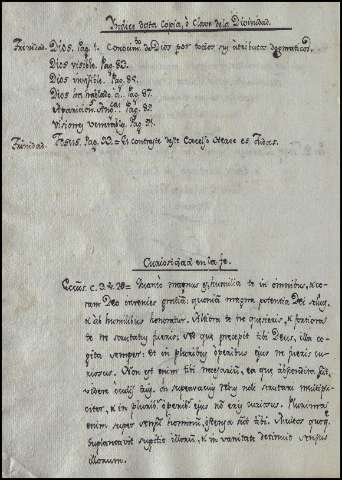 Indice desta Copia, ò Clave de la Divinidad.
Trinidad. Dios. Pag. 1. Conocim.to de Dios por todos sus atributos dogmaticos.
Dios visible. Pag. 83.
Dios invisible. Pag. 85.
Dios ha hablado Pag. 87.
Pag. 89.
Visiones Pag. 91.
Trinidad. Jesus. Pag. 93. = El contraste deste Clave es Judas.
Curiosidad en la fe.
c. 3. v. 20 = Quanto magnus es humilia te in omnibus, & co-
ram Deo invenies gratiã. quoniã magna potentia Dei
& ab humilibus honoratur. Altiora te ne quesieris, & fortiora
te ne scrutatus fueris: sed que precepit tibi Deus, illa co-
gita semper: et in pluribus operibus ejus ne fueris cu-
riosus. Non est enim tibi necesariũ, ea que abscondita sũt,
videre oculis tuis. In supervacuis rebus noli scrutari multipli-
citer, & in pluribus operibus ejus nõ eris curiosus. Plurima
enim super sensũ hominũ, ostensa sunt tibi. Multos quoq.
supplantavit suspitio illorũ, & in vanitate detinuit sensus
illorum.